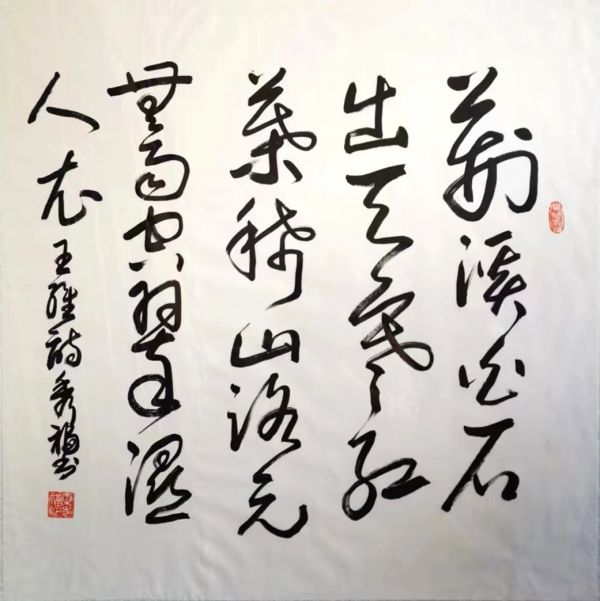 荆溪白石
出天寒紅
葉稀山路元
無雨空翠濕
人衣 王維詩秀